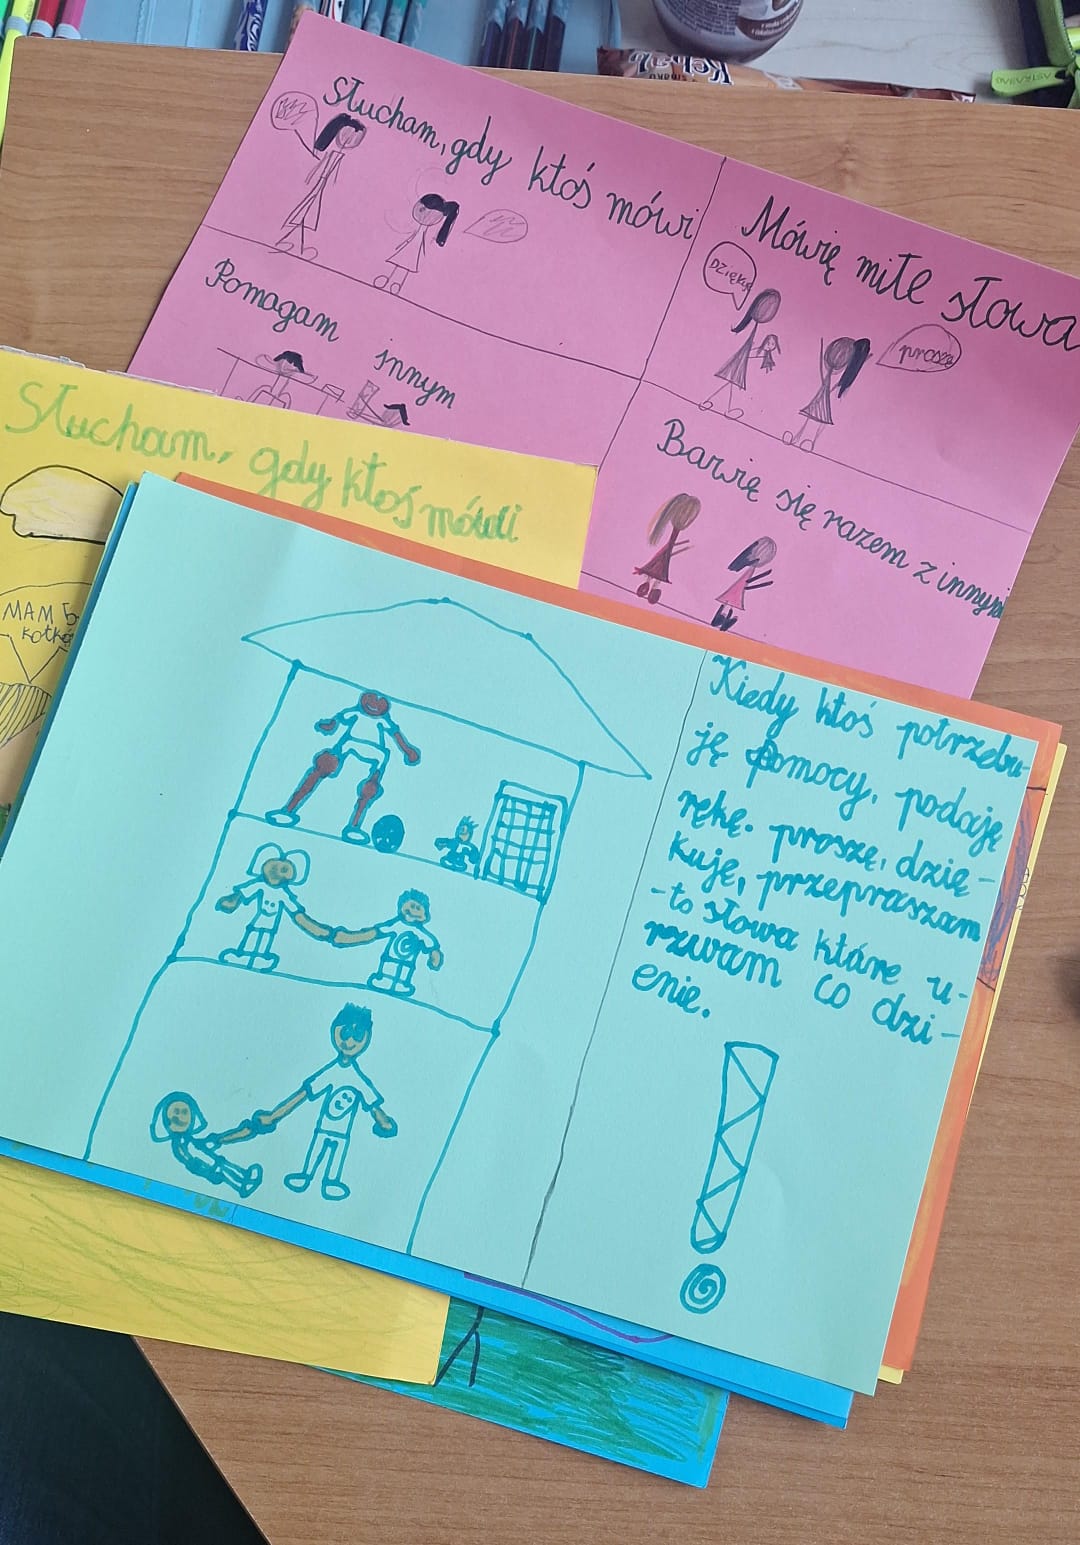 Słucham, gdy ktoś mówi
Mówię miłe słowa
Dziękuję
proszę
Pomagam innym
Bawię się razem z innymi
Słucham, gdy ktoś mówi
MAM 5
kotków
Kiedy ktoś potrzebu-
ję pomocy, podaję
rękę. proszę, dzię-
kuję, przepraszam
-to słowa które u-
rzwam co dzi-
enie.
ASTRABAG